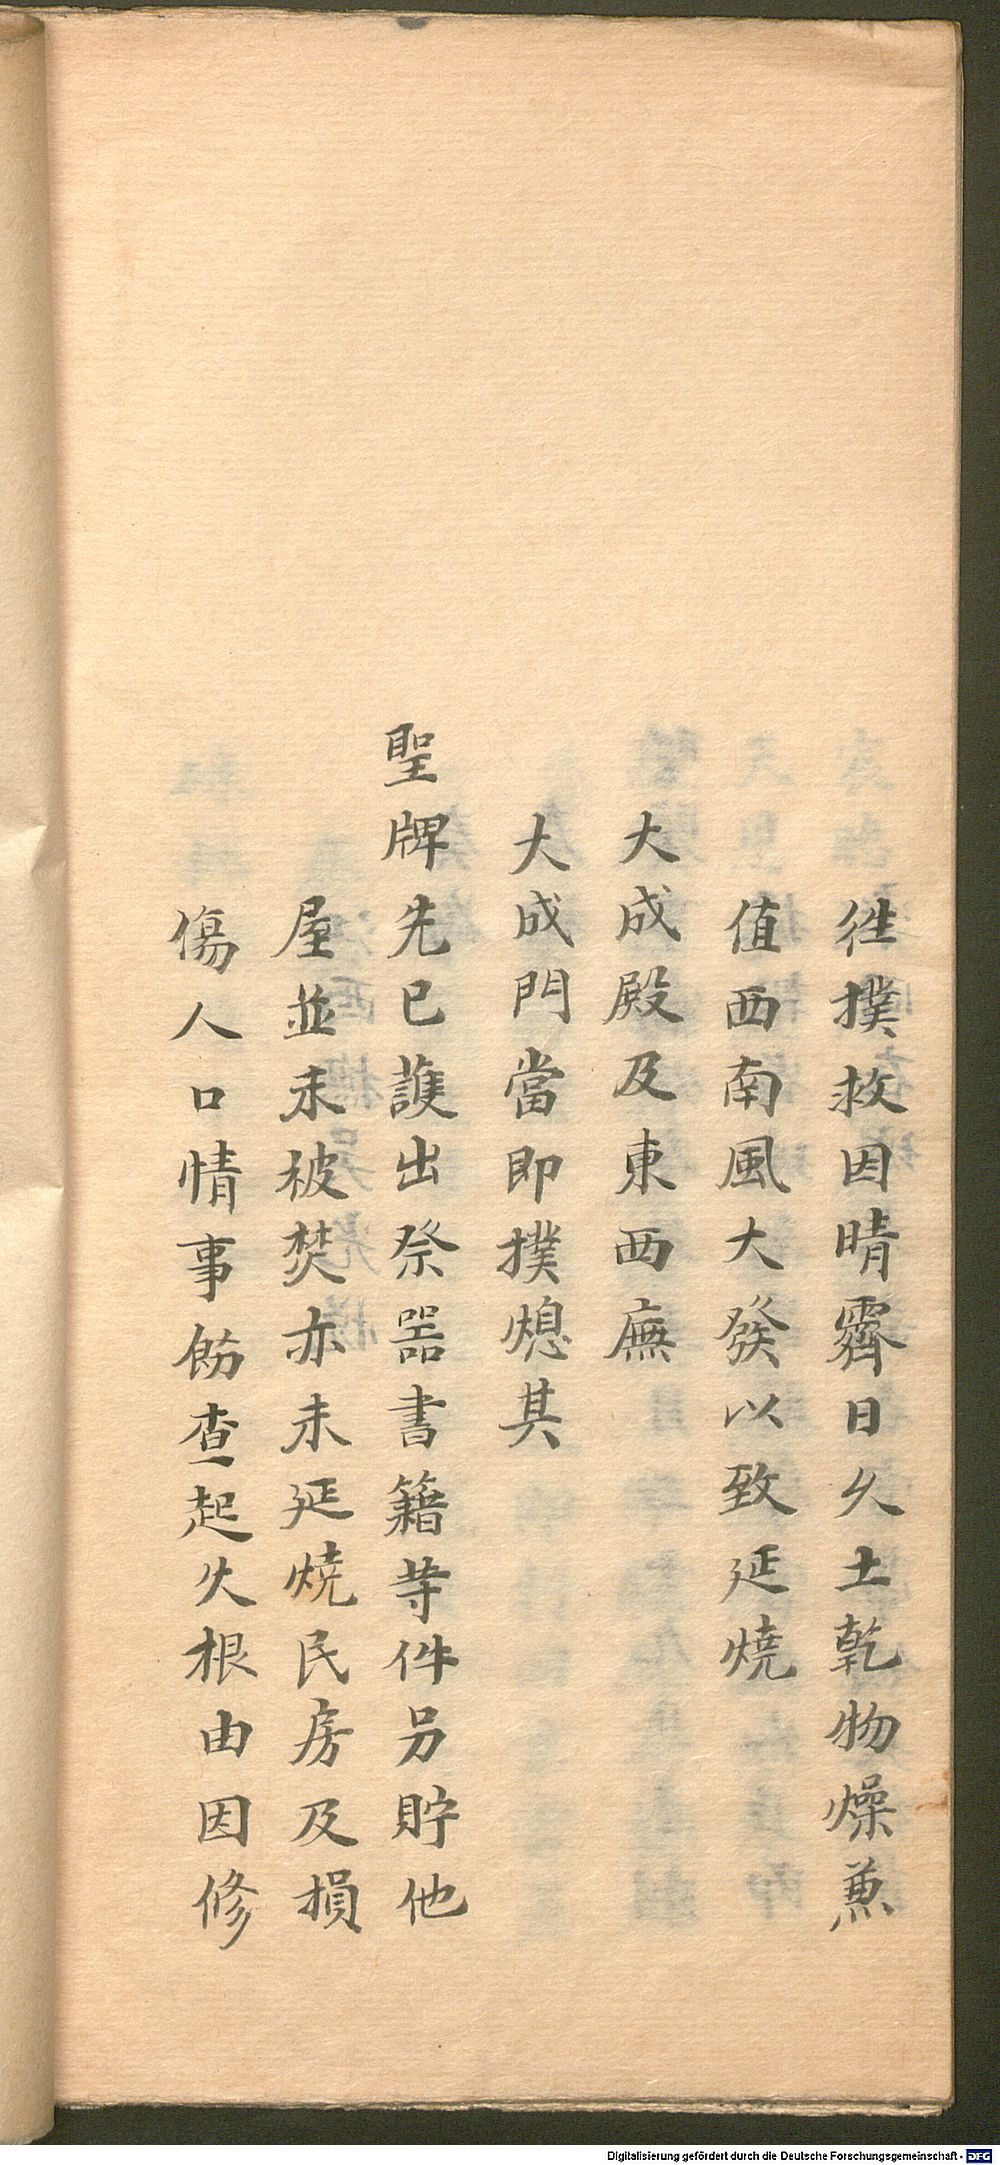 徃撲救因晴霽日久土乾物燥兼
值西南風大發以致延燒
大成殿及東西廡
大成門當即撲熄其
聖牌先已護出祭器書籍等件另貯他
屋並未被焚亦未延燒民房及損
傷人口情事飭查起火根由因修
Digitalisierung gefördert durch die Deutsche Forschungsgemeinschaft - DFG